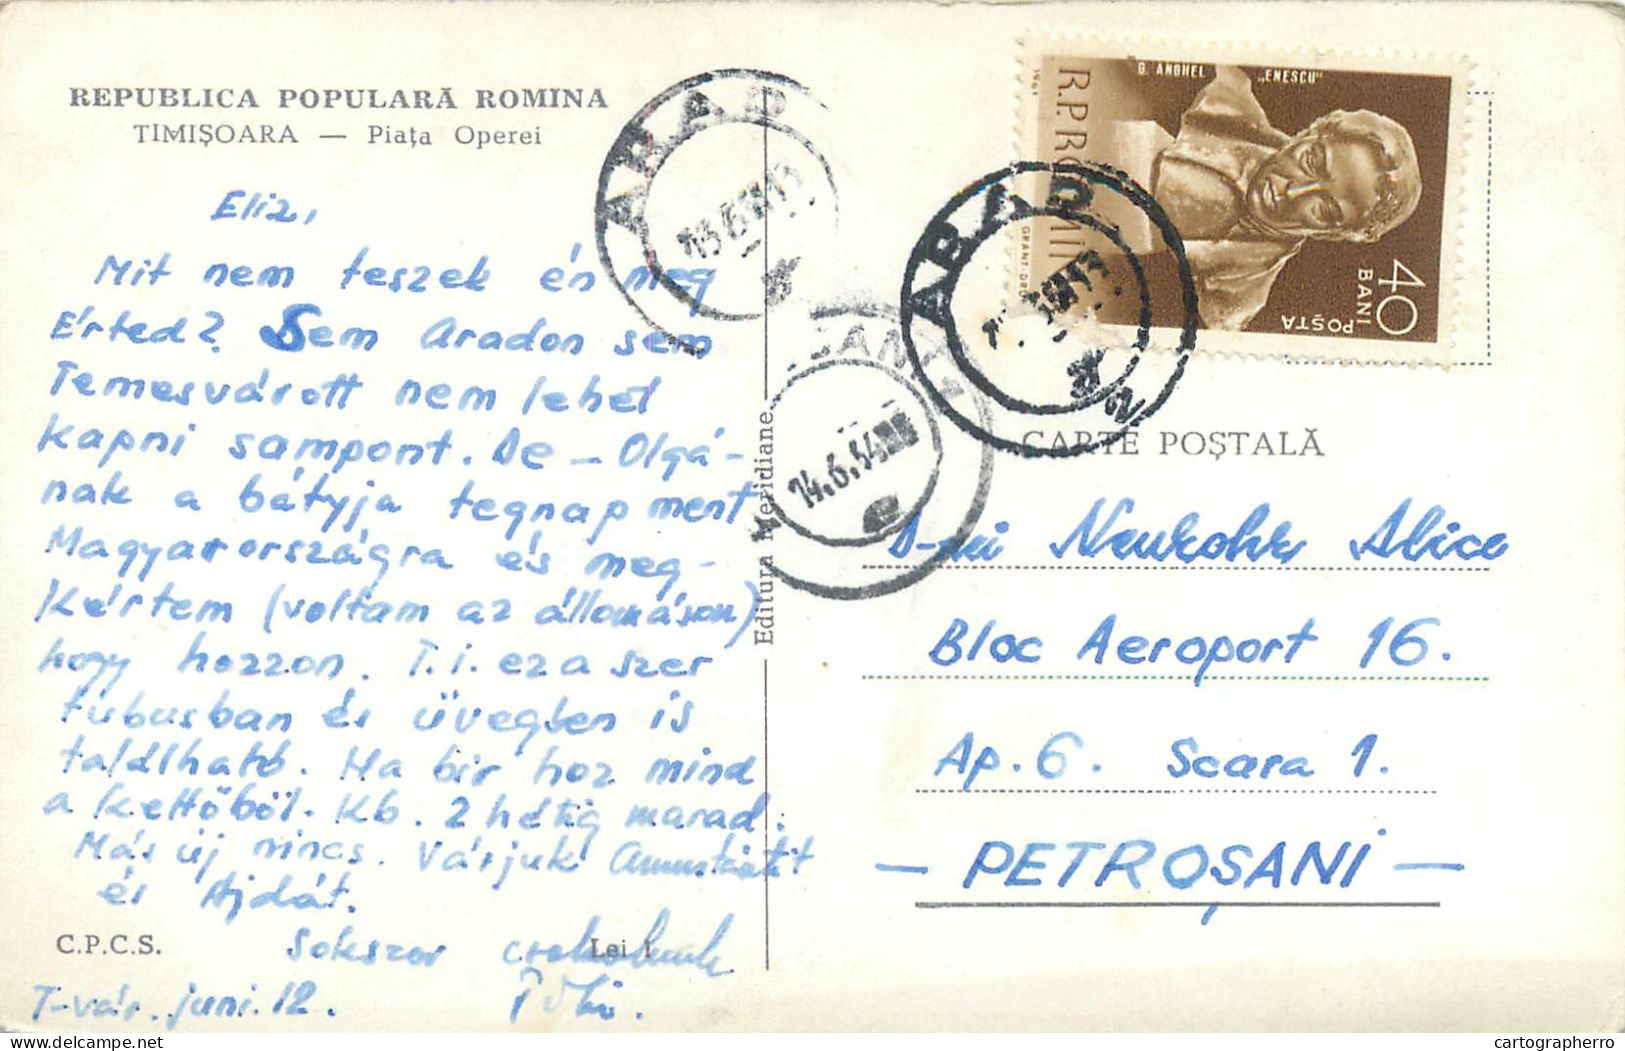 REPUBLICA POPULARĂ ROMINA
TIMIȘOARA — Piața Operei
Eliz,
Mit nem teszek én meg
Érted? Sem Aradon sem
Temesvárott nem lehet
kapni sampont. De — Olgá-
nak a bátyja tegnap ment
Magyarországra és meg-
kértem (voltam az állomáson)
hogy hozzon. T.i. ez a szer
tubusban és üvegben is
található. Ha bir hoz mind
a kettőből. Kb. 2 hétig marad.
Más új nincs. Várjuk
és Ajdát.
Sokszor csokolunk
T-vár. juni. 12.
C.P.C.S.
Lei 1
Editura Meridiane
ARAD
ARAD
14.6.64
G. ANGHEL „ENESCU"
R.P.ROMÎNĂ
POȘTA
40
BANI
CARTE POȘTALĂ
Alice
Bloc Aeroport 16.
Ap. 6. Scara 1.
— PETROȘANI —
cartographerro